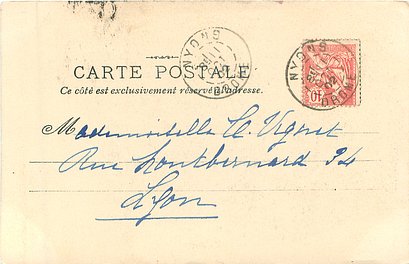 CARTE POSTALE
Ce côté est exclusivement réservé à l'adresse.
NYONS
DROME
NYONS
DROME
02
10
Mademoiselle A. Vignet
Rue Montbernard 34
Lyon